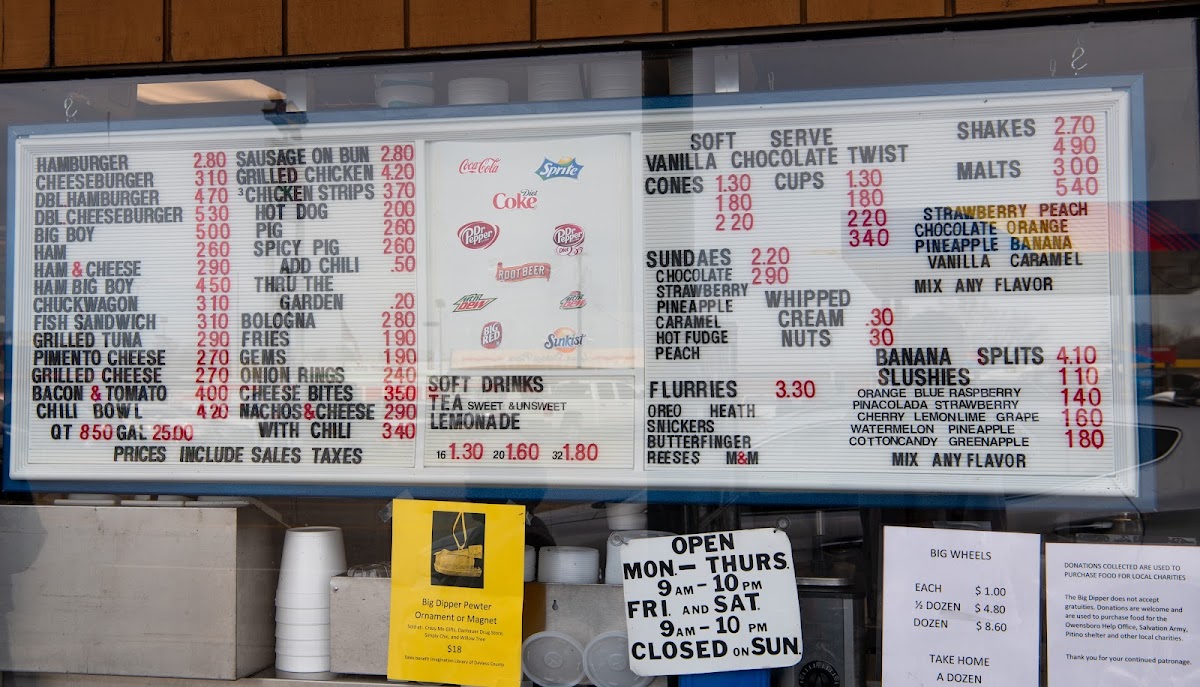 HAMBURGER 2.80
CHEESEBURGER 310
DBL.HAMBURGER 470
DBL.CHEESEBURGER 530
BIG BOY 500
HAM 260
HAM & CHEESE 290
HAM BIG BOY 450
CHUCKWAGON 310
FISH SANDWICH 310
GRILLED TUNA 290
PIMENTO CHEESE 270
GRILLED CHEESE 270
BACON & TOMATO 400
CHILI BOWL 420
QT 850 GAL 25.00
SAUSAGE ON BUN 2.80
GRILLED CHICKEN 4.20
3 CHICKEN STRIPS 3.70
HOT DOG 200
PIG 260
SPICY PIG 260
ADD CHILI .50
THRU THE
GARDEN .20
BOLOGNA 280
FRIES 190
GEMS 190
ONION RINGS 240
CHEESE BITES 350
NACHOS&CHEESE 290
WITH CHILI 340
PRICES INCLUDE SALES TAXES
Coca-Cola
Sprite
Diet
Coke
Dr Pepper
Dr Pepper
ROOT BEER
Mtn Dew
BIG RED
Sunkist
SOFT DRINKS
TEA SWEET & UNSWEET
LEMONADE
16 1.30 20 1.60 32 1.80
SOFT SERVE
VANILLA CHOCOLATE TWIST
CONES 1.30 CUPS 1.30
180 180
220 220
340
SUNDAES 2.20
CHOCOLATE 290
STRAWBERRY
PINEAPPLE
CARAMEL
HOT FUDGE
PEACH
WHIPPED
CREAM .30
NUTS .30
FLURRIES 3.30
OREO HEATH
SNICKERS
BUTTERFINGER
REESES M&M
SHAKES 2.70
490
MALTS 300
540
STRAWBERRY PEACH
CHOCOLATE ORANGE
PINEAPPLE BANANA
VANILLA CARAMEL
MIX ANY FLAVOR
BANANA SPLITS 4.10
SLUSHIES 110
ORANGE BLUE RASPBERRY 140
PINACOLADA STRAWBERRY
CHERRY LEMONLIME GRAPE 160
WATERMELON PINEAPPLE
COTTONCANDY GREENAPPLE 180
MIX ANY FLAVOR
Big Dipper Pewter
Ornament or Magnet
$18
OPEN
MON.– THURS.
9AM – 10 PM
FRI. AND SAT.
9AM – 10 PM
CLOSED ON SUN.
BIG WHEELS
EACH $ 1.00
½ DOZEN $ 4.80
DOZEN $ 8.60
TAKE HOME
A DOZEN
DONATIONS COLLECTED ARE USED TO
PURCHASE FOOD FOR LOCAL CHARITIES
The Big Dipper does not accept
gratuities. Donations are welcome and
are used to purchase food for the
Owensboro Help Office, Salvation Army,
Pitino shelter and other local charities.
Thank you for your continued patronage.